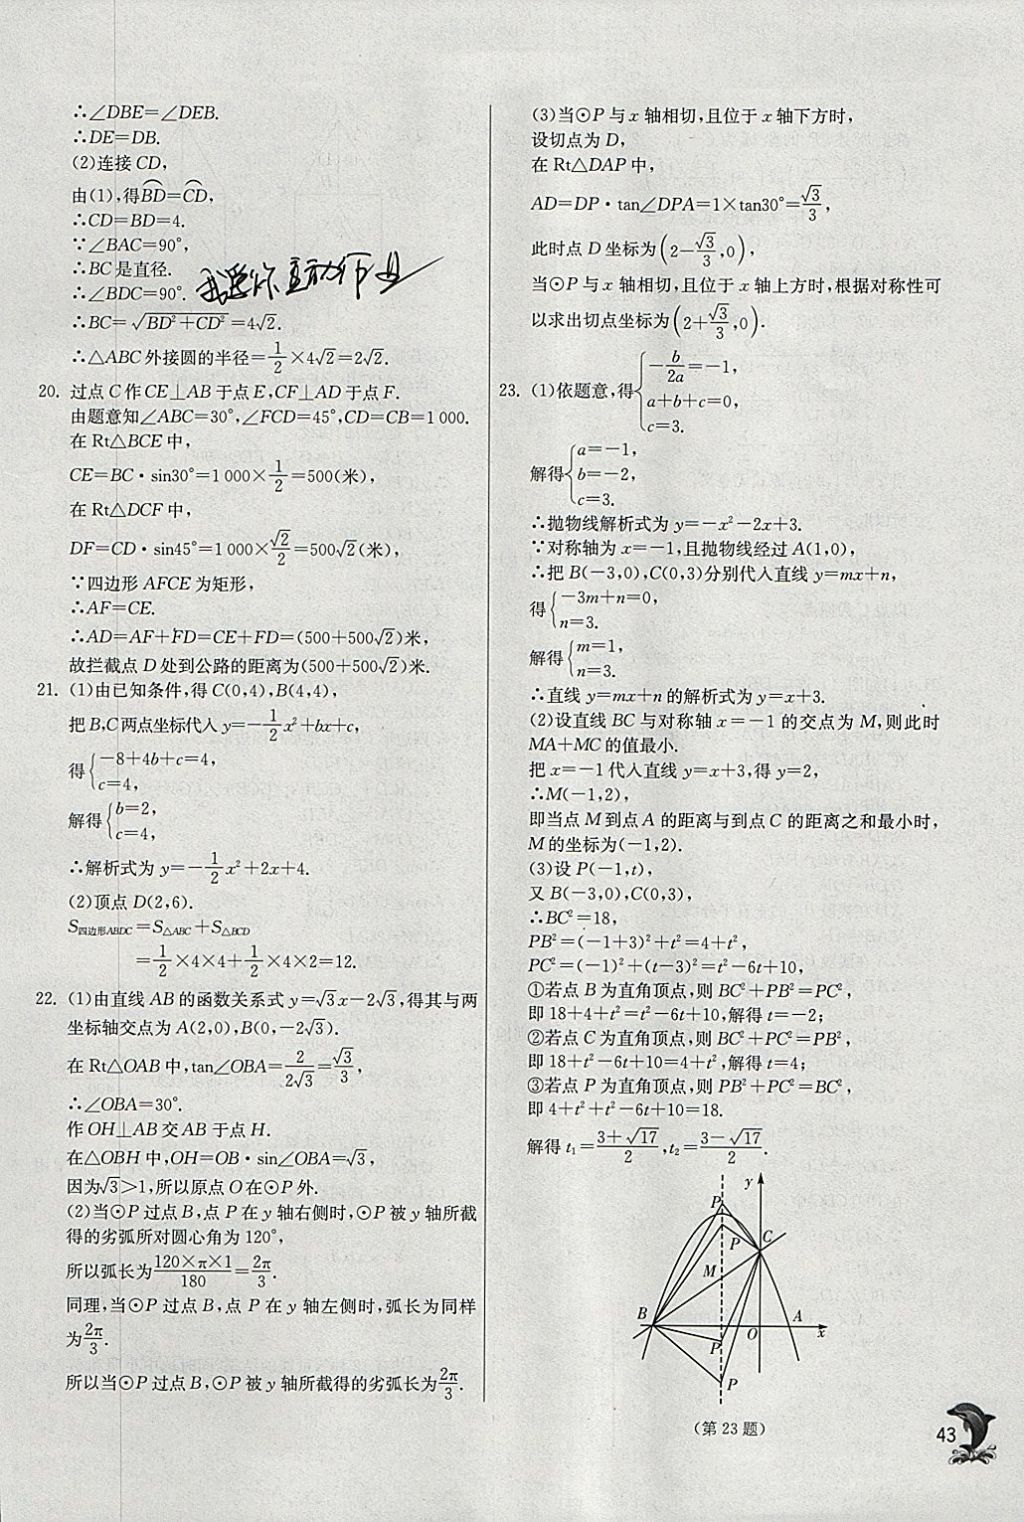 ∴∠DBE=∠DEB.
∴DE=DB.
(2)连接 CD,
由(1),得B͡D=C͡D,
∴CD=BD=4.
∵∠BAC=90°,
∴BC是直径.
∴∠BDC=90°.
∴BC=√(BD²+CD²)=4√2.
∴△ABC外接圆的半径=1/2×4√2=2√2.
20. 过点C作CE⊥AB于点E,CF⊥AD于点F.
由题意知∠ABC=30°,∠FCD=45°,CD=CB=1 000.
在 Rt△BCE中,
CE=BC·sin30°=1 000×1/2=500(米),
在 Rt△DCF中,
DF=CD·sin45°=1 000×√2/2=500√2(米),
∵四边形 AFCE 为矩形,
∴AF=CE.
∴AD=AF+FD=CE+FD=(500+500√2)米,
故拦截点D处到公路的距离为(500+500√2)米.
21. (1)由已知条件,得C(0,4),B(4,4),
把B,C两点坐标代入 y=-1/2x²+bx+c,
得{-8+4b+c=4,
c=4,
解得{b=2,
c=4,
∴解析式为 y=-1/2x²+2x+4.
(2)顶点D(2,6).
S四边形ABDC=S△ABC+S△BCD
=1/2×4×4+1/2×4×2=12.
22. (1)由直线AB的函数关系式y=√3x-2√3,得其与两
坐标轴交点为A(2,0),B(0,-2√3).
在 Rt△OAB中,tan∠OBA=2/(2√3)=√3/3,
∴∠OBA=30°.
作OH⊥AB交AB于点H.
在△OBH中,OH=OB·sin∠OBA=√3,
因为√3>1,所以原点O在⊙P外.
(2)当⊙P过点B,点P在y轴右侧时,⊙P被y轴所截
得的劣弧所对圆心角为120°,
所以弧长为(120×π×1)/180=2π/3.
同理,当⊙P过点B,点P在y轴左侧时,弧长为同样
为2π/3.
所以当⊙P过点B,⊙P被y轴所截得的劣弧长为2π/3.
(3)当⊙P与x轴相切,且位于x轴下方时,
设切点为D,
在 Rt△DAP中,
AD=DP·tan∠DPA=1×tan30°=√3/3,
此时点D坐标为(2-√3/3,0),
当⊙P与x轴相切,且位于x轴上方时,根据对称性可
以求出切点坐标为(2+√3/3,0).
23. (1)依题意,得{-b/2a=-1,
a+b+c=0,
c=3.
解得{a=-1,
b=-2,
c=3.
∴抛物线解析式为 y=-x²-2x+3.
∵对称轴为x=-1,且抛物线经过A(1,0),
∴把B(-3,0),C(0,3)分别代入直线y=mx+n,
得{-3m+n=0,
n=3.
解得{m=1,
n=3.
∴直线y=mx+n的解析式为y=x+3.
(2)设直线BC与对称轴x=-1的交点为M,则此时
MA+MC的值最小.
把x=-1代入直线y=x+3,得y=2,
∴M(-1,2),
即当点M到点A的距离与到点C的距离之和最小时,
M的坐标为(-1,2).
(3)设P(-1,t),
又B(-3,0),C(0,3),
∴BC²=18,
PB²=(-1+3)²+t²=4+t²,
PC²=(-1)²+(t-3)²=t²-6t+10,
①若点B为直角顶点,则BC²+PB²=PC²,
即18+4+t²=t²-6t+10,解得t=-2;
②若点C为直角顶点,则BC²+PC²=PB²,
即18+t²-6t+10=4+t²,解得t=4;
③若点P为直角顶点,则PB²+PC²=BC²,
即4+t²+t²-6t+10=18.
解得t₁=(3+√17)/2,t₂=(3-√17)/2.
y
P
P
C
M
B
O
A
x
P
P
(第23题)
43